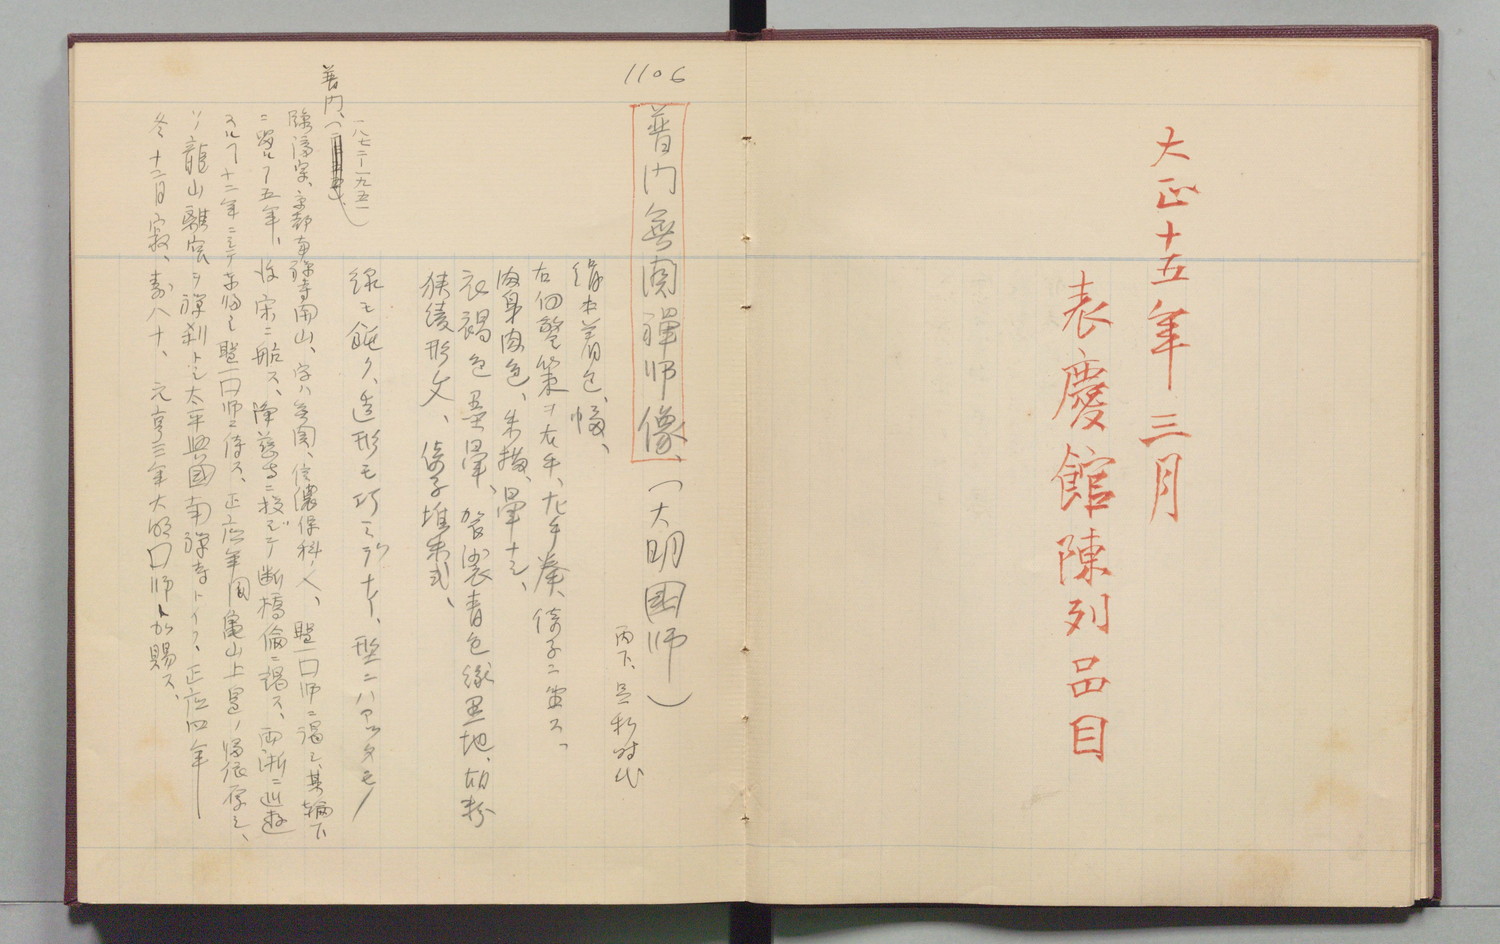 大正十五年三月
表慶館陳列品目
1106
普門無関禅師像、(大明国師)
丙下、足利時代
絹本着色、幅、
右回警策ヲ右手、左手拳、倚子ニ坐ス、
肉身肉色、朱描、暈ナシ、
衣褐色墨暈、袈裟青色縁黒地、胡粉
狭綾形文、倚子堆朱式、
線モ鈍ク、造形モ巧ミデナイ、型ニハマッタモノ
普門、(
一八七二―一九五一)
臨済宗、京都南禅寺開山、字ハ無関、信濃保科ノ人、聖一国師ニ謁シ、其輪下
ニ留ルコト五年、後宋ニ航ス、浄慈寺ニ投ジテ断橋倫ニ謁ス、両浙ニ巡遊
スルコト十二年ニシテ東帰シ聖一国師ニ侍ス、正応年間亀山上皇ノ帰依厚シ、
ソノ龍山離宮ヲ禅刹トシ太平興国南禅寺トイフ、正応四年
冬十二月寂、寿八十、元亨三年大明国師ト加賜ス、